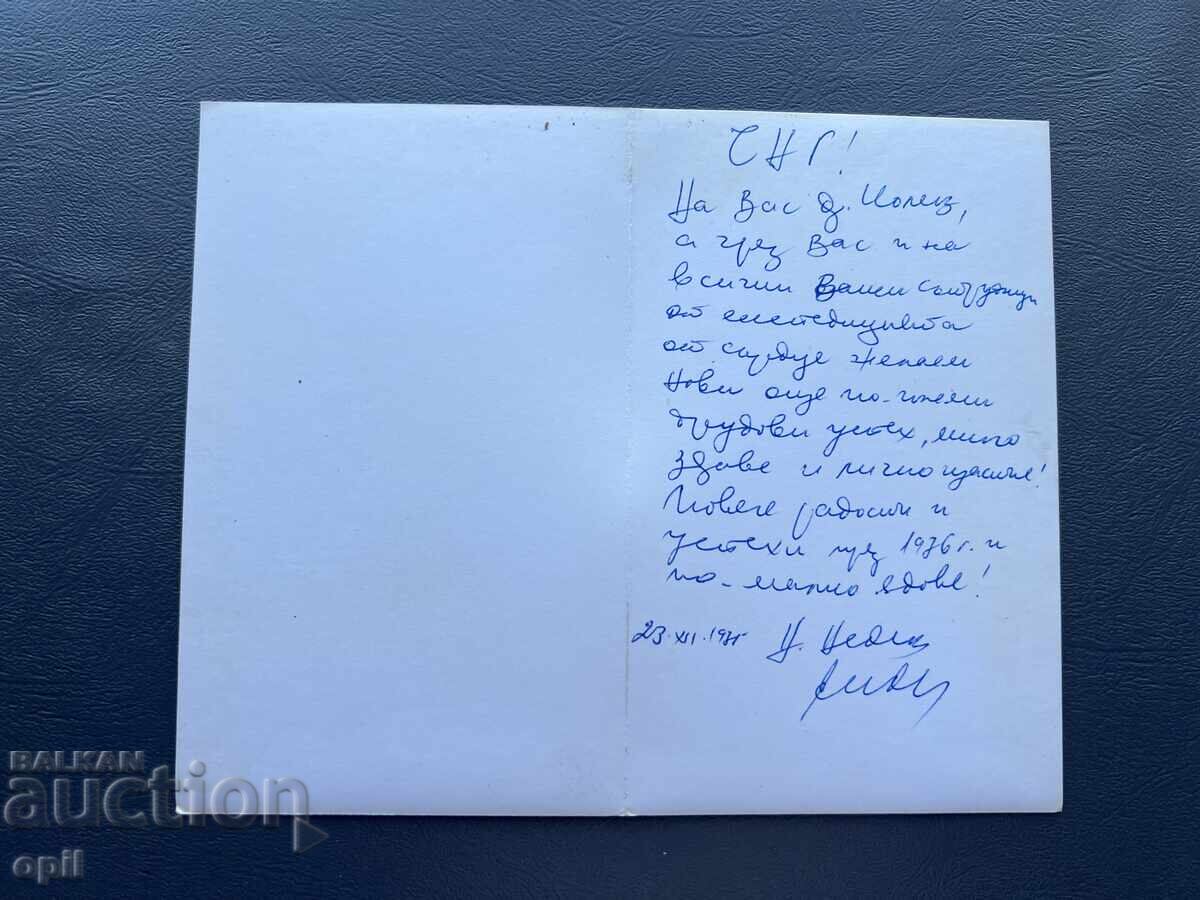 ЧНГ!
На Вас д.
а чрез Вас и на
всички Ваши сътрудници
от
от сърдце желаем
Нови още по-големи
трудови успех, много
здраве и лично щастие!
Повече радости и
успехи през 1976 г. и
по-малко ядове!
23.XII.1975 Н.
BALKAN
auction
opil